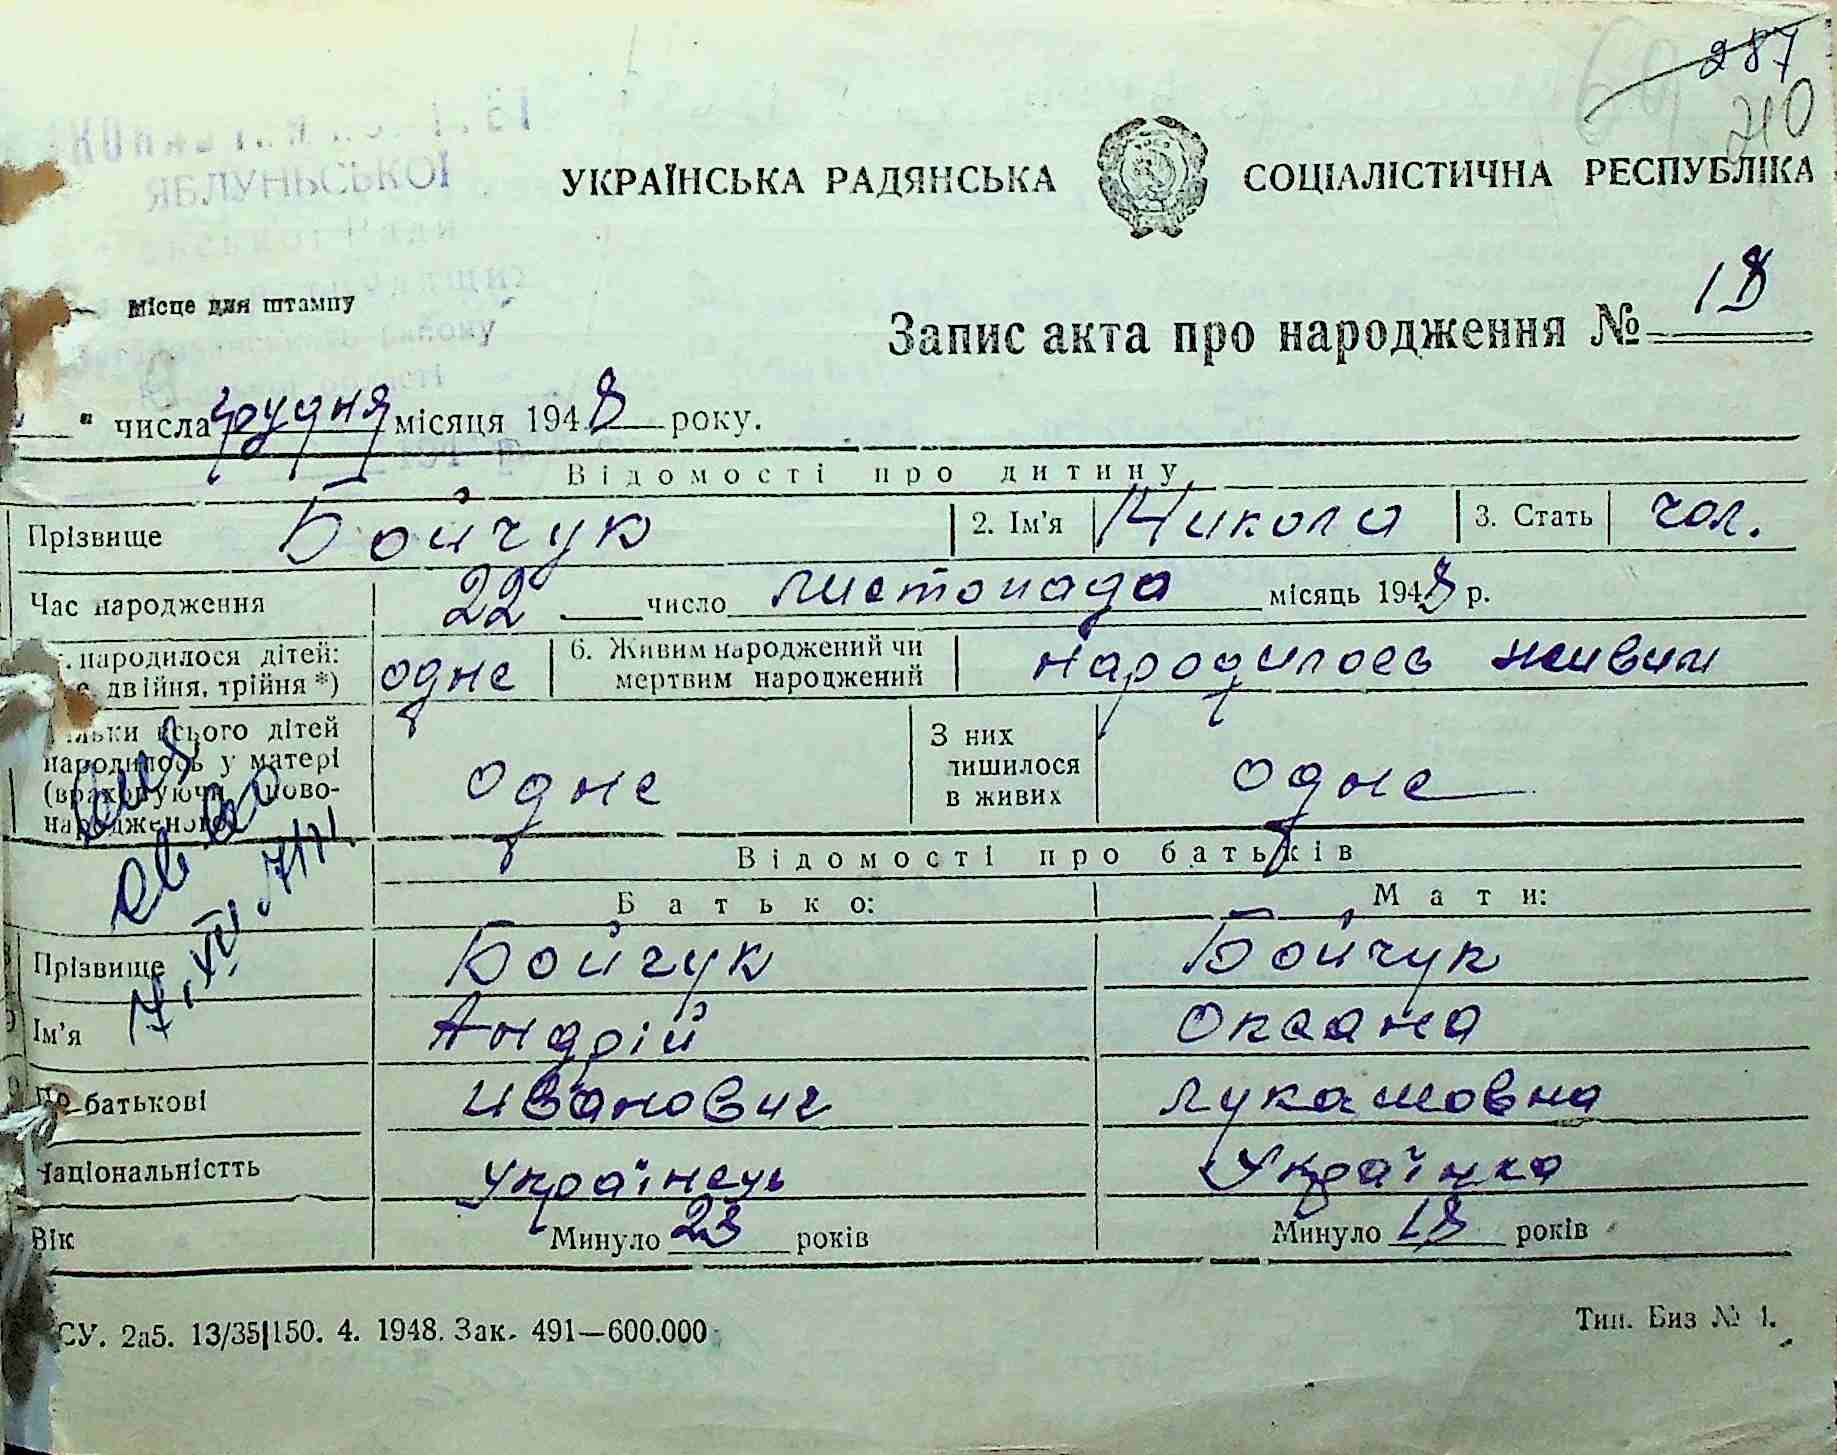 287
210
ЯБЛУНЬСЬКОЇ
УКРАЇНСЬКА РАДЯНСЬКА СОЦІАЛІСТИЧНА РЕСПУБЛІКА
Місце для штампу
Запис акта про народження № 18
" числа грудня місяця 1948 року.
Відомості про дитину
Прізвище Бойчук 2. Ім'я Микола 3. Стать чол.
Час народження 22 число листопада місяць 1948 р.
народилося дітей: одне 6. Живим народжений чи народилось живим
двійня, трійня *) мертвим народжений
всього дітей З них
народилось у матері одне лишилося одне
(враховуючи ново- в живих
народженого)
Відомості про батьків
Батько: Мати:
Прізвище Бойчук Бойчук
Ім'я Андрій Оксана
По батькові Иванович Лукашовна
Національністть Українець Українка
Вік Минуло 23 років Минуло 18 років
СУ. 2а5. 13/35|150. 4. 1948. Зак. 491—600.000 Тип. Биз № 1.